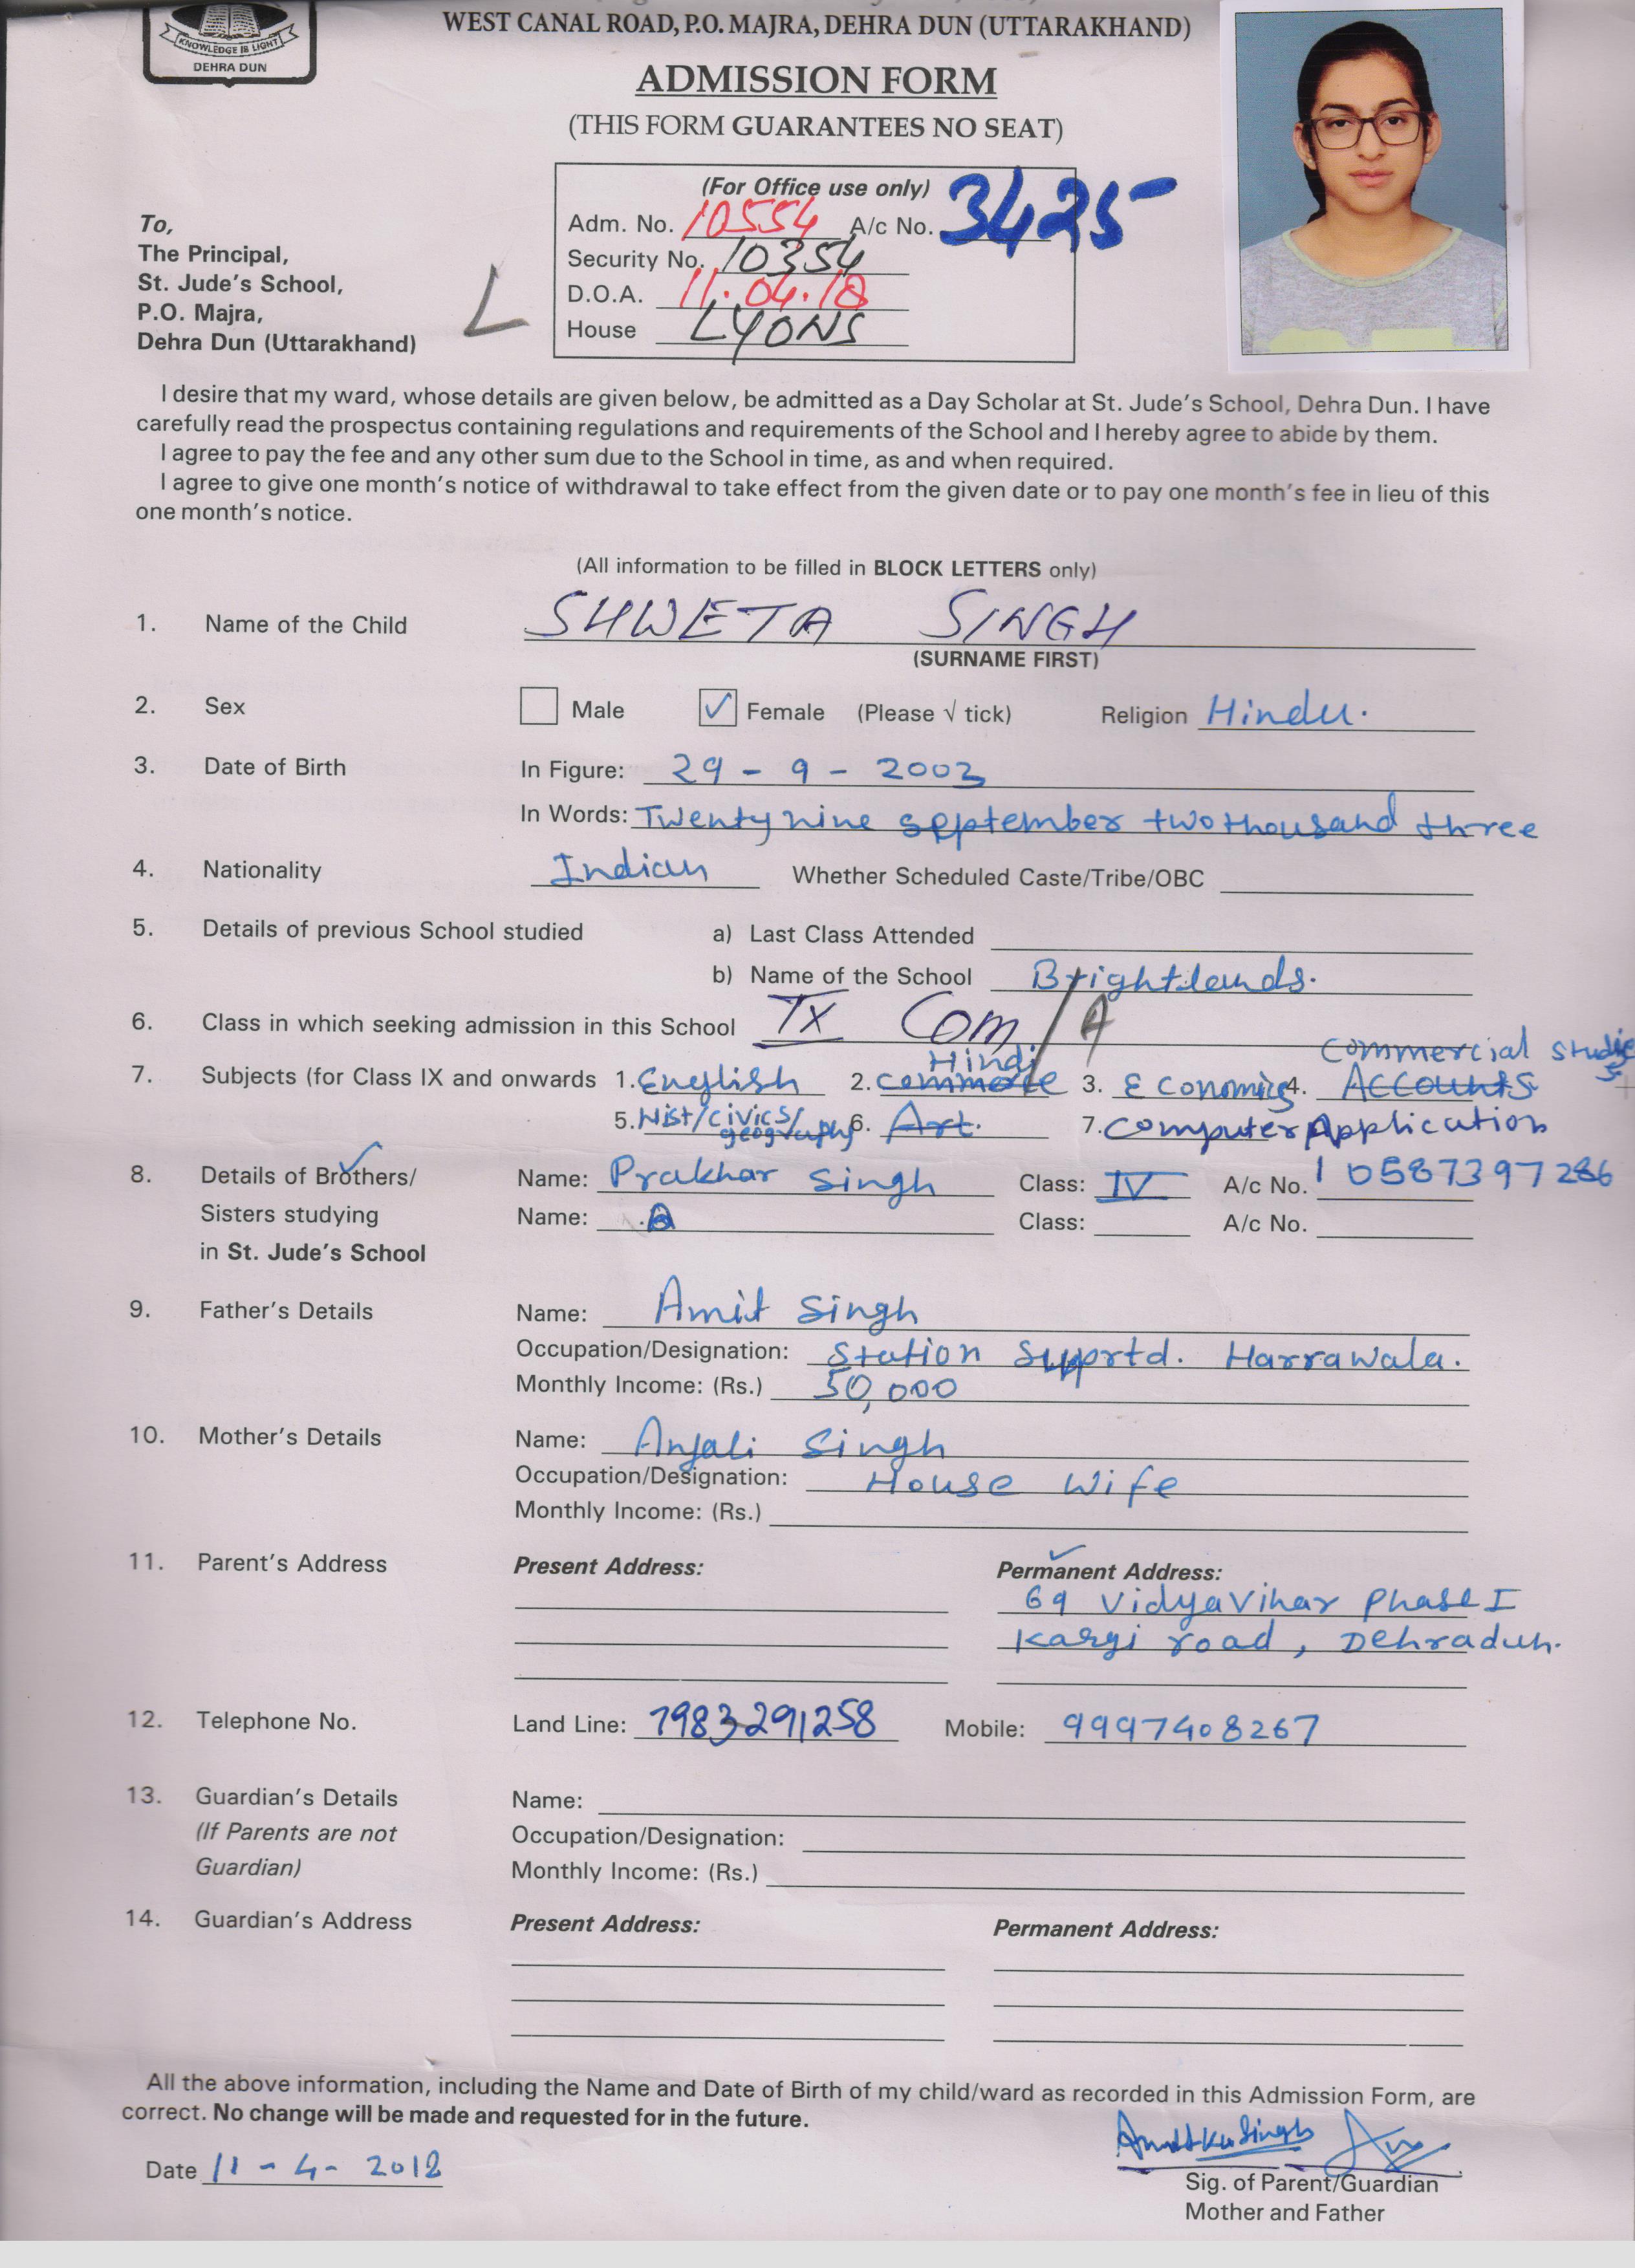 KNOWLEDGE IS LIGHT
DEHRA DUN
WEST CANAL ROAD, P.O. MAJRA, DEHRA DUN (UTTARAKHAND)
ADMISSION FORM
(THIS FORM GUARANTEES NO SEAT)
(For Office use only)
Adm. No. 10554 A/c No. 3425
Security No. 10354
D.O.A. 11.04.18
House LYONS
To,
The Principal,
St. Jude's School,
P.O. Majra,
Dehra Dun (Uttarakhand)
I desire that my ward, whose details are given below, be admitted as a Day Scholar at St. Jude's School, Dehra Dun. I have
carefully read the prospectus containing regulations and requirements of the School and I hereby agree to abide by them.
I agree to pay the fee and any other sum due to the School in time, as and when required.
I agree to give one month's notice of withdrawal to take effect from the given date or to pay one month's fee in lieu of this
one month's notice.
(All information to be filled in BLOCK LETTERS only)
1. Name of the Child SHWETA SINGH
(SURNAME FIRST)
2. Sex Male ✓ Female (Please √ tick) Religion Hindu.
3. Date of Birth In Figure: 29 - 9 - 2003
In Words: Twenty nine september two thousand three
4. Nationality Indian Whether Scheduled Caste/Tribe/OBC
5. Details of previous School studied a) Last Class Attended
b) Name of the School Brightlands.
6. Class in which seeking admission in this School IX Com/A
Hindi Commercial Studies
7. Subjects (for Class IX and onwards 1. English 2. commerce 3. Economics 4. Accounts
5. Hist/civics/geography 6. Art. 7. Computer Application
8. Details of Brothers/ Name: Prakhar Singh Class: IV A/c No. 10587397286
Sisters studying Name: Class: A/c No.
in St. Jude's School
9. Father's Details Name: Amit Singh
Occupation/Designation: Station Supprtd. Harrawala.
Monthly Income: (Rs.) 50,000
10. Mother's Details Name: Anjali Singh
Occupation/Designation: House Wife
Monthly Income: (Rs.)
11. Parent's Address Present Address: Permanent Address:
69 Vidya Vihar Phase I
Kargi road, Dehradun.
12. Telephone No. Land Line: 7983291258 Mobile: 9997408267
13. Guardian's Details Name:
(If Parents are not Occupation/Designation:
Guardian) Monthly Income: (Rs.)
14. Guardian's Address Present Address: Permanent Address:
All the above information, including the Name and Date of Birth of my child/ward as recorded in this Admission Form, are
correct. No change will be made and requested for in the future.
Date 11 - 4 - 2018
Sig. of Parent/Guardian
Mother and Father